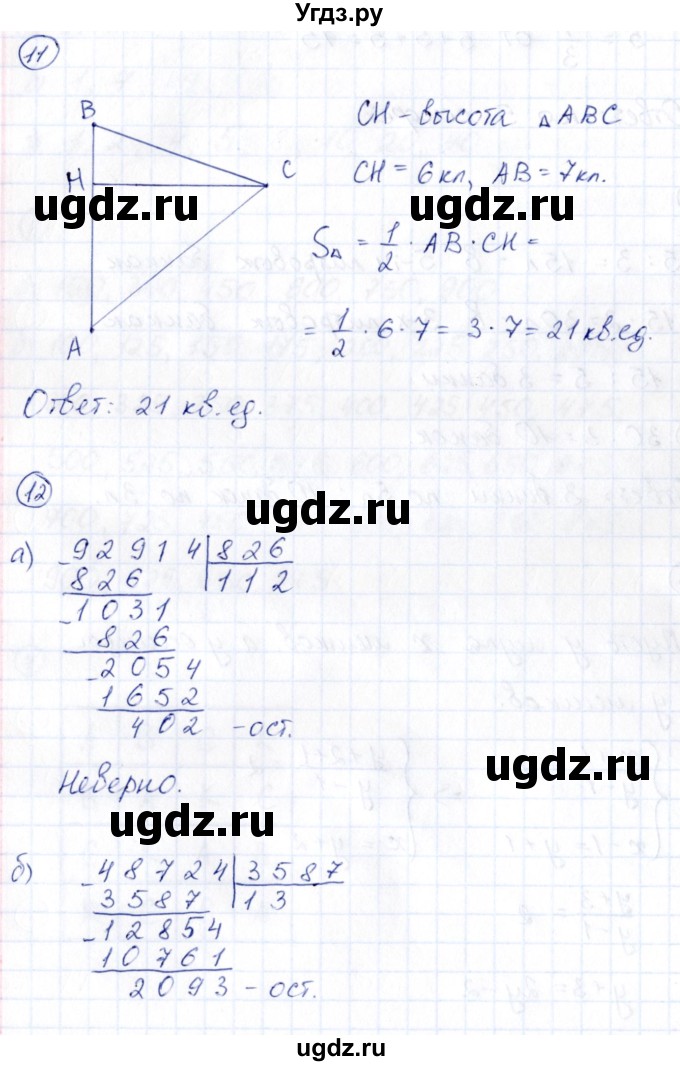 Угdз.ру
11
B
C
H
A
CH – высота △ ABC
CH = 6 кл, AB = 7 кл.
S△ = 1/2 · AB · CH =
= 1/2 · 6 · 7 = 3 · 7 = 21 кв.ед.
ugdz.ru
ugdz.ru
Ответ: 21 кв.ед.
12
ugdz.ru
а)
92914 826
826 112
1031
826
2054
1652
402 – ост.
ugdz.ru
Неверно.
ugdz.ru
б)
48724 3587
3587 13
12854
10761
2093 – ост.
ugdz.ru